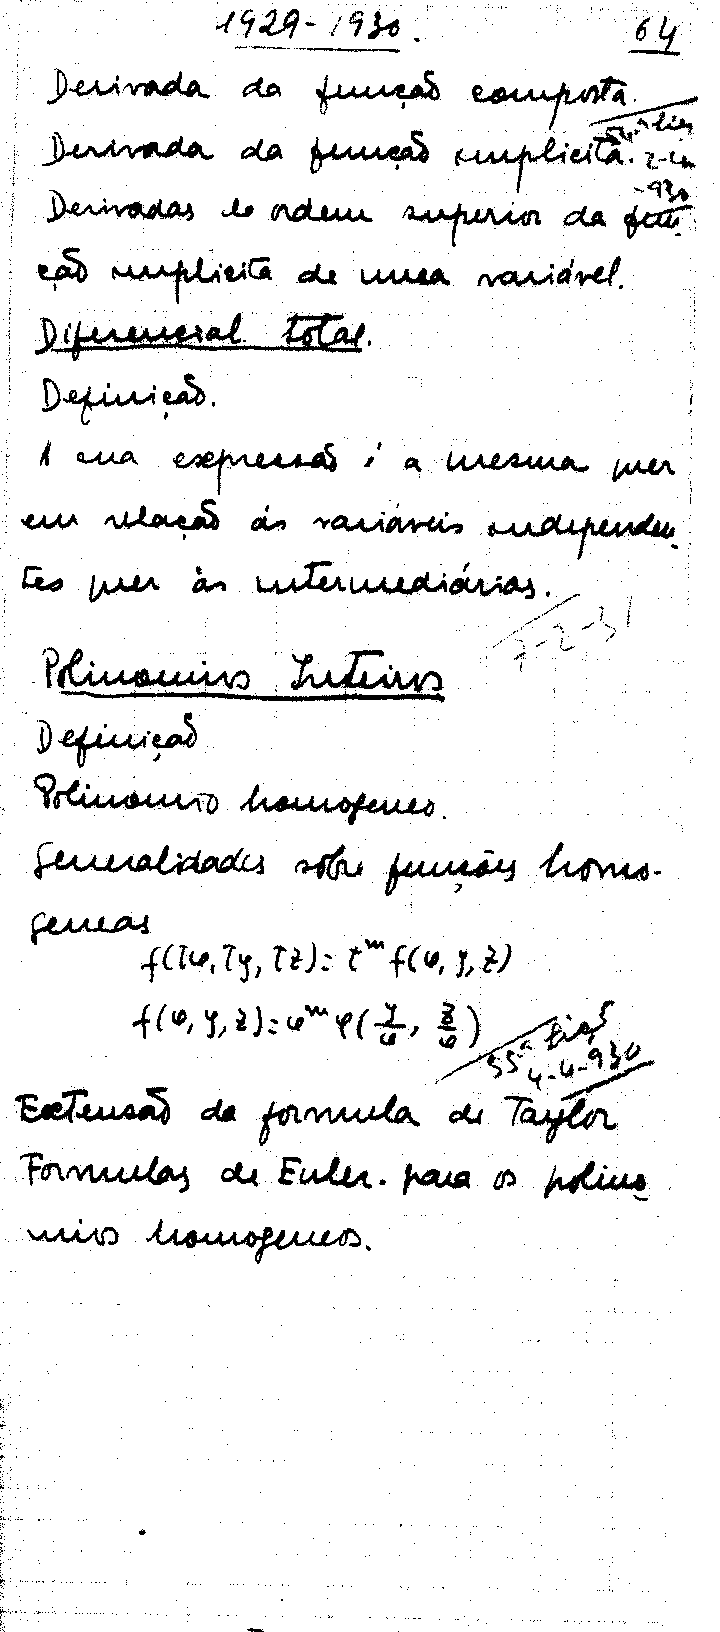 1929-1930. 64
Derivada da função composta.
54ª liç
Derivada da função implicita. 2-4
-930
Derivadas de ordem superior da fun-
ção implicita de uma variável.
Diferencial total.
Definição.
A sua expressão é a mesma quer
em relação ás variáveis independen-
tes quer às intermediárias.
7-2-31
Polinomios Inteiros
Definição
Polinomio homogeneo.
Generalidades sôbre funções homo-
geneas
f(tx, ty, tz) = t^m f(x, y, z)
f(x, y, z) = x^m φ(y/x, z/x)
55ª liç
4-4-930
Extensão da formula de Taylor
Formulas de Euler. para os polino-
mios homogeneos.